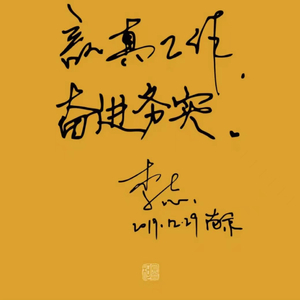 認真工作，
奋进务实。
李志
2019.12.29 南京